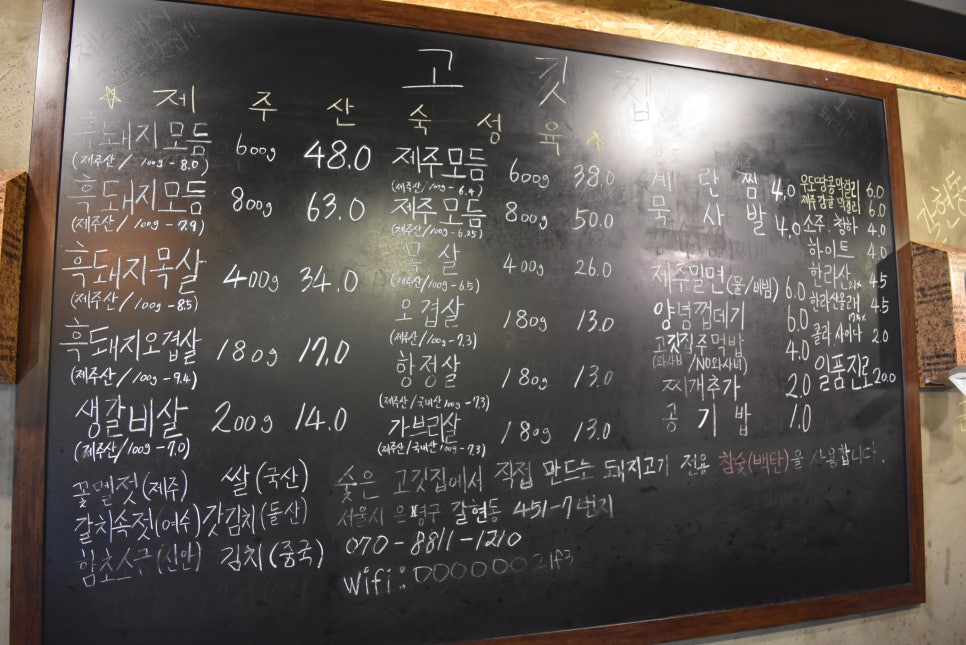 고 깃 집
☆ 제 주 산 숙 성 육 ☆
흑돼지모듬 600g 48.0
(제주산/100g-8.0)
흑돼지모듬 800g 63.0
(제주산/100g-7.9)
흑돼지목살 400g 34.0
(제주산/100g-8.5)
흑돼지오겹살 180g 17.0
(제주산/100g-9.4)
생갈비살 200g 14.0
(제주산/100g-7.0)
제주모듬 600g 38.0
(제주산/100g-6.4)
제주모듬 800g 50.0
(제주산/100g-6.25)
목 살 400g 26.0
(제주산/100g-6.5)
오겹살 180g 13.0
(제주산/100g-7.3)
항정살 180g 13.0
(제주산/국내산100g-7.3)
가브리살 180g 13.0
(제주산/국내산100g-7.3)
계 란 찜 4.0
묵 사 발 4.0
제주밀면(물/비빔) 6.0
양념껍데기 6.0
고깃집주먹밥 4.0
(와사비/NO와사비)
찌개추가 2.0
공 기 밥 1.0
우도땅콩막걸리 6.0
제주감귤막걸리 6.0
소주. 청하 4.0
하이트 4.0
한라산 4.5
한라산올래 4.5
콜라 사이다 2.0
일품진로 20.0
꽃멜젓(제주) 쌀(국산)
갈치속젓(여수) 갓김치(돌산)
함초소금(신안) 김치(중국)
숯은 고깃집에서 직접 만드는 돼지고기 전용 참숯(백탄)을 사용합니다.
서울시 은평구 갈현동 451-74번지
070-8811-1210
wifi: 00000021f3